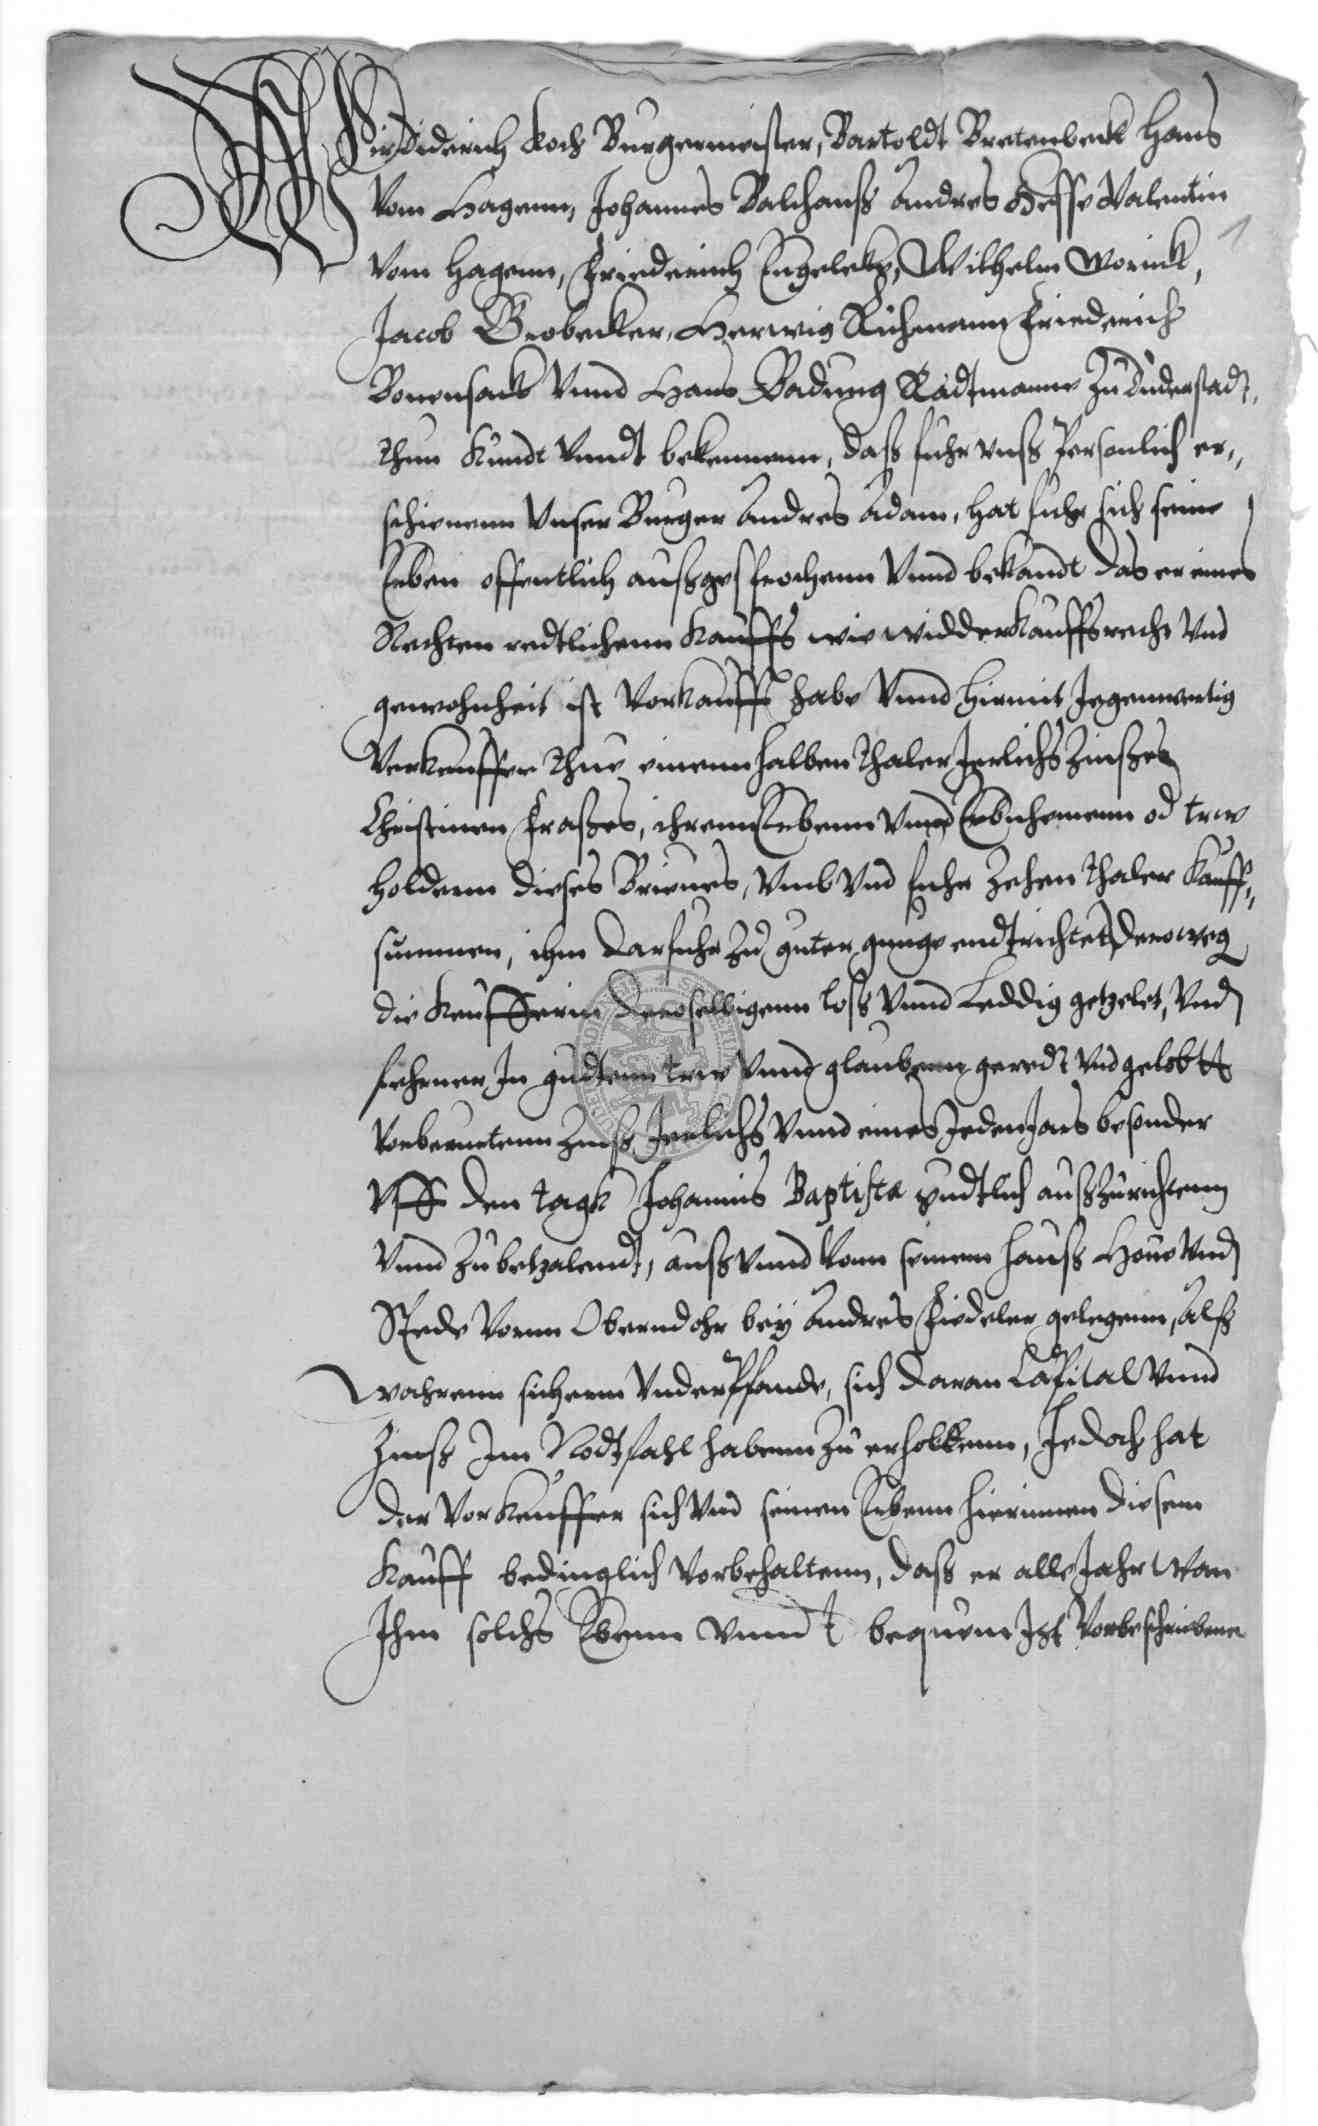 Wir Diderich Koch Burgermeister, Bartoldt Bretenbeck Hans
vom Hagenn, Johannes Balchanß Andres Hesse Valentin
vom Hagenn, Friederich Engelcke, Wilhelm Worink,
Jacob Brobecker, Herwig Richmann Friederich
Bonensack vnnd Hans Badung Radtmanne zu Duderstadt,
thun kundt vnndt bekennenn, daß fuhr vnß Persönlich er„
schienenn vnser Burger Andres Adam, hat fuhr sich seine
Erben offentlich außgesprochenn vnnd bekandt das er eines
Rechten redtlichenn kauffs wie widderkauffsrecht vnd
gewohnheit ist vorkaufft habe vnnd hirmit Jegenwertig
verkeuffen thue einenn halben thaler Jerlichs Zinßes
Christinen Fraßes, ihrenn Erbenn vnnd Erbnhemenn od trw
holdenn dieses Brieues, vmb vnd fuhr zehen thaler Kauff„
summen, ihm darfuhr zu guter gnuge endtrichtet Deroweg
die keufferin deroselbigenn loß vnnd Leddig getzelet, vnd
fehrner In gudtenn trw vnnd glaubenn geredt vnd gelobtt
vorberurtenn Zinß Jerlichs vnnd eines Jeden Jars besonder
vff den tagk Johannis Baptistæ gudtlich außzurichtenn
vnnd zubetzalendt, auß vnnd vonn seinem hauß Houe vnd
Stede vorm Oberndohr bey Andres Fiedeler gelegenn, Alß
wahrenn sicherm vnderpfande, sich daran Capital vnnd
Zinß Im Nodtfahl habenn zu erholenn, Jedoch hat
der vorkeuffer sich vnd seinen Erbenn hierinnen diesem
kauff bedinglich vorbehaltenn, daß er alle Jahr wan
Ihm solchs Ebenn vnndt bequem Ist vorbeschriebene
1